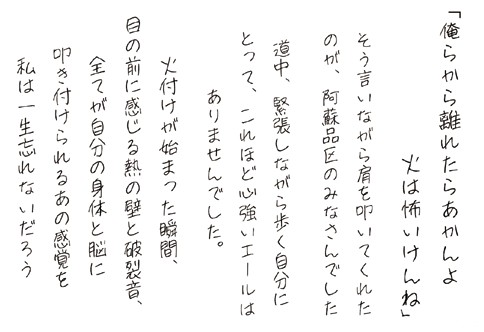 「俺らから離れたらあかんよ
火は怖いけんね」
そう言いながら肩を叩いてくれた
のが、阿蘇品区のみなさんでした
道中、緊張しながら歩く自分に
とって、これほど心強いエールは
ありませんでした。
火付けが始まった瞬間、
目の前に感じる熱の壁と破裂音、
全てが自分の身体と脳に
叩き付けられるあの感覚を
私は一生忘れないだろう